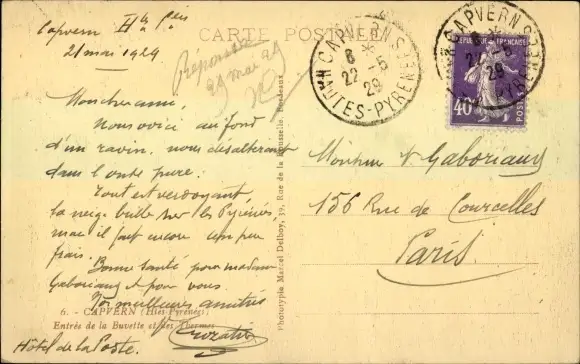 CARTE POSTALE
Capvern Htes Pées
21 mai 1929
Réponse
29 mai 29
Mon cher ami,
Nous voici au fond
d'un ravin, nous désaltérant
dans l'onde pure.
Tout est verdoyant
la neige brille sur les Pyrénées,
mais il fait encore un peu
frais.
Bonne santé pour madame
Gaboriaud et pour vous.
Vos meilleures amitiés
Hôtel de la Poste.
6. - CAPVERN (Htes-Pyrénées)
Entrée de la Buvette et des Thermes
Phototypie Marcel Delboy, 39, Rue de la Rousselle, Bordeaux
CAPVERN
8 * 22 -5 29
HAUTES-PYRENEES
CAPVERN
29
HTES-PYRENEES
REPUBLIQUE FRANÇAISE
40c
POSTES
Monsieur Gaboriaud
156 Rue de Courcelles
Paris